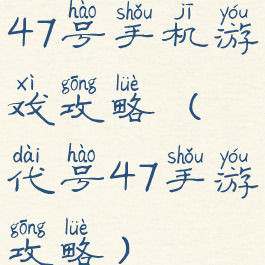 hào shǒu jī yóu
47号手机游
xì gōng lüè
戏攻略（
dài hào shǒu yóu
代号47手游
gōng lüè
攻略）